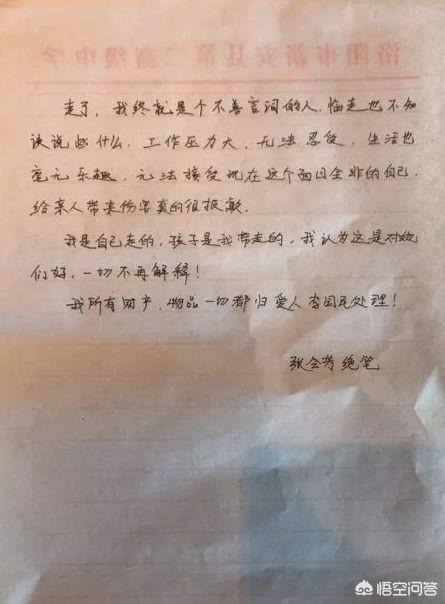 洛阳市新安县第二高级中学
走了，我终就是个不善言词的人，临走也不知
该说些什么，工作压力大，无法忍受，生活也
毫无乐趣，无法接受现在这个面目全非的自己，
给亲人带来伤害真的很报歉．
我是自己走的，孩子是我带走的，我认为这是对她
们好，一切不再解释！
我所有财产、物品一切都归爱人李国民处理！
张会芳 绝笔
悟空问答